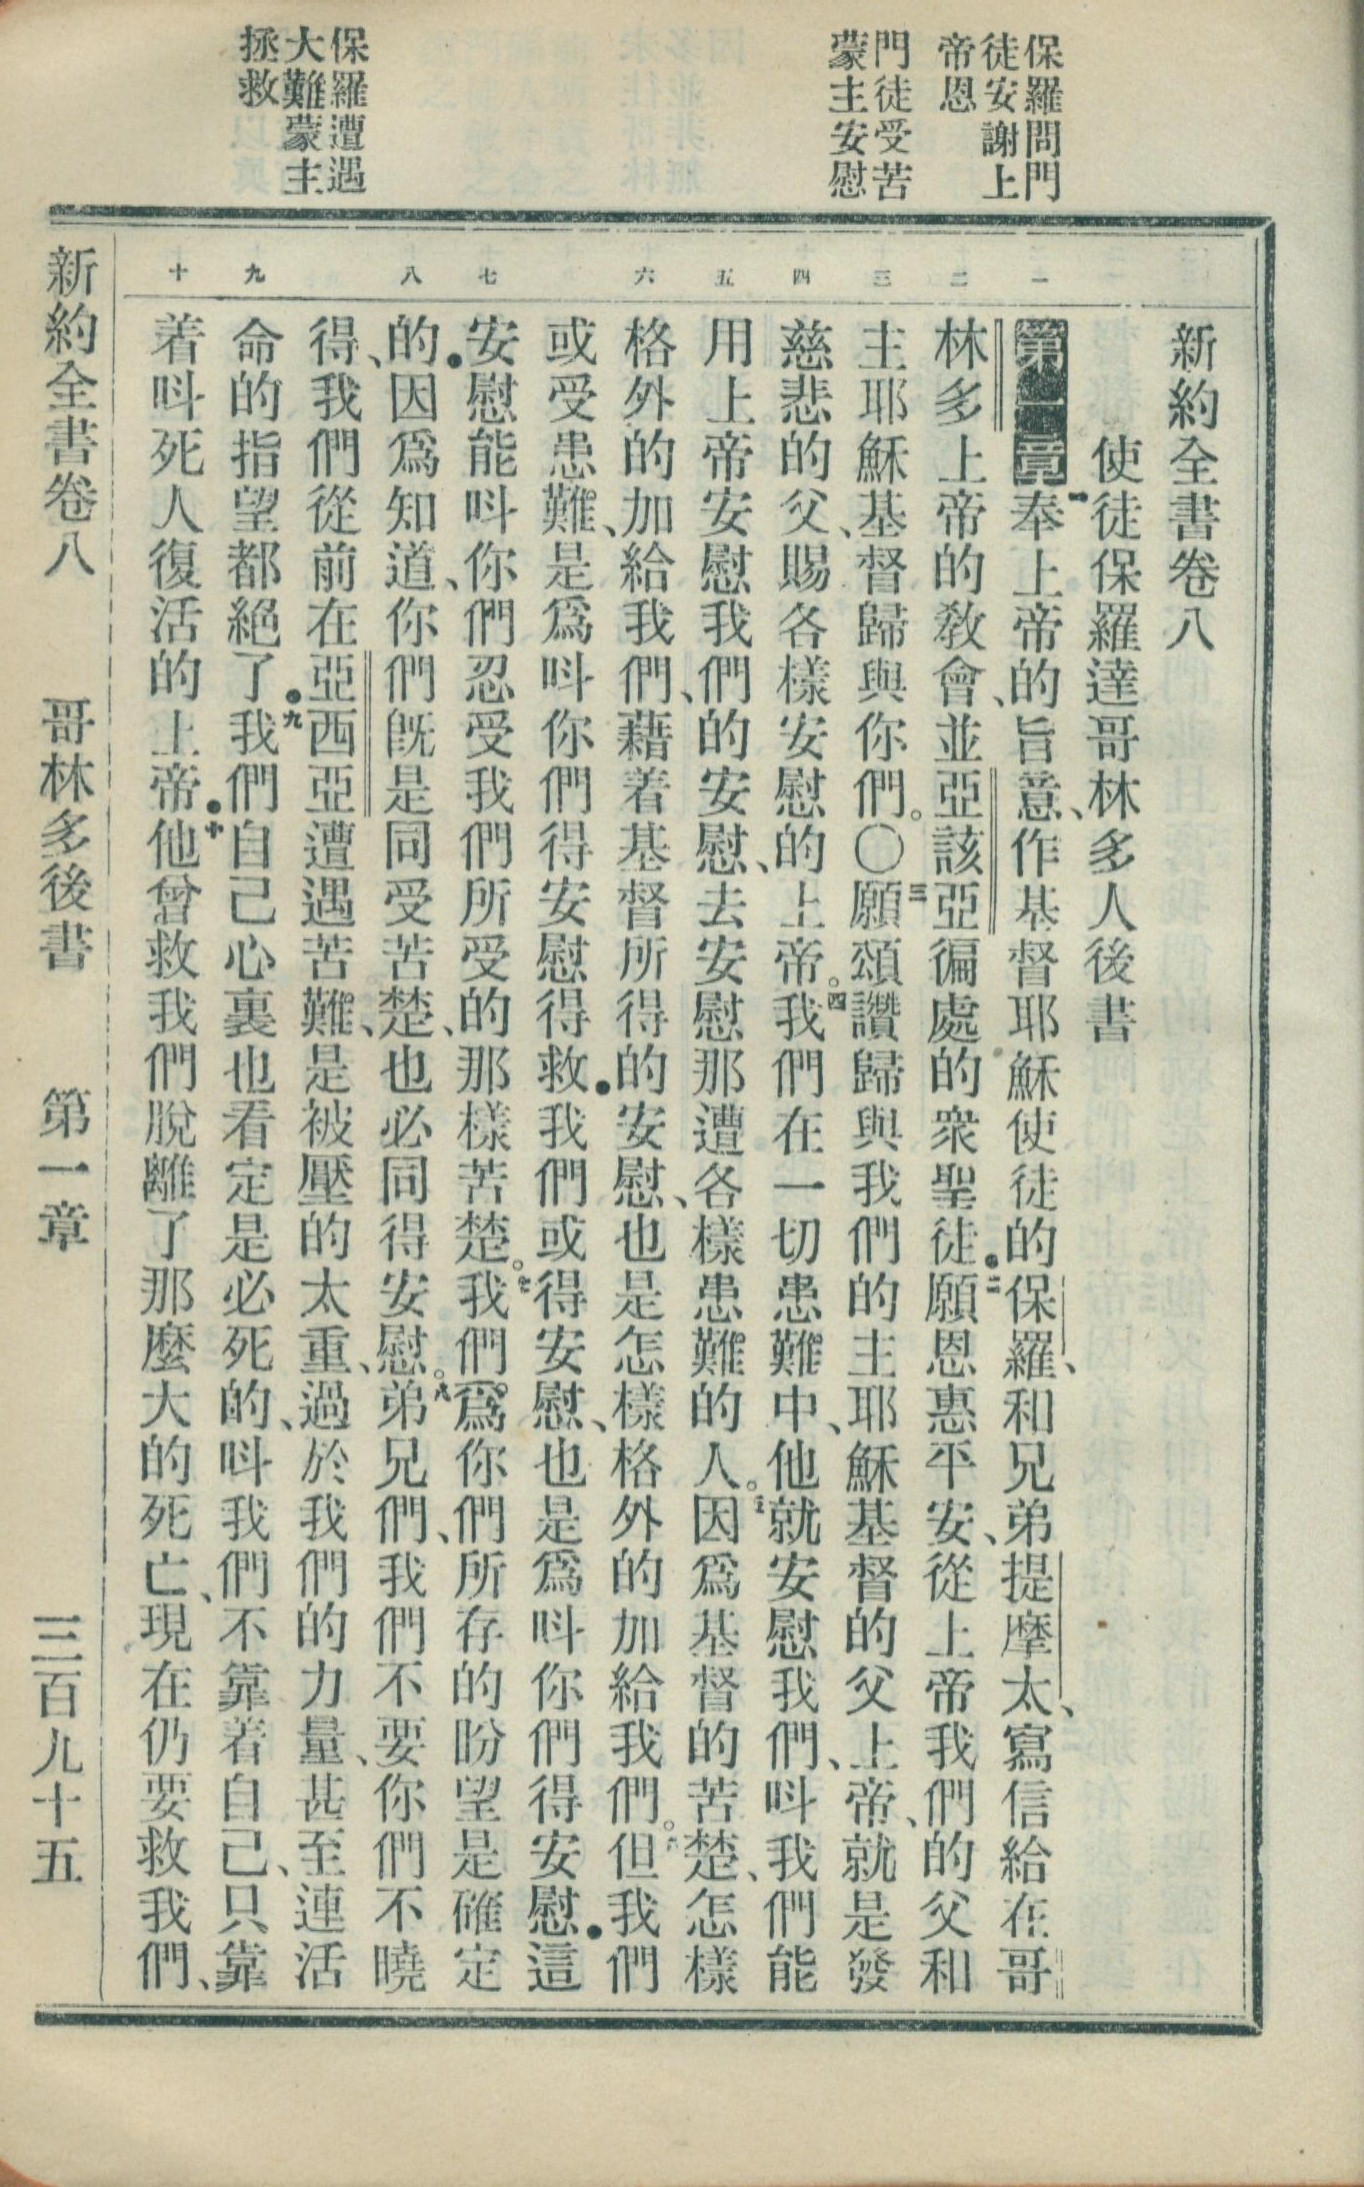 保羅問門
徒安謝上
帝恩
門徒受苦
蒙主安慰
保羅遭遇
大難蒙主
拯救
一
二
三
四
五
六
七
八
九
十
新約全書卷八
使徒保羅達哥林多人後書
第一章一奉上帝的旨意、作基督耶穌使徒的保羅、和兄弟提摩太、寫信給在哥
林多上帝的敎會、並亞該亞徧處的衆聖徒●二願恩惠平安、從上帝我們的父和
主耶穌基督歸與你們。〇三願頌讚歸與我們的主耶穌基督的父上帝、就是發
慈悲的父、賜各樣安慰的上帝。四我們在一切患難中、他就安慰我們、呌我們能
用上帝安慰我們的安慰、去安慰那遭各樣患難的人。五因爲基督的苦楚、怎樣
格外的加給我們、藉着基督所得的安慰、也是怎樣格外的加給我們。六但我們
或受患難、是爲呌你們得安慰得救●我們或得安慰、也是爲呌你們得安慰●這
安慰能呌你們忍受我們所受的那樣苦楚。七我們爲你們所存的盼望是確定
的●因爲知道、你們旣是同受苦楚、也必同得安慰。八弟兄們、我們不要你們不曉
得、我們從前在亞西亞遭遇苦難、是被壓的太重、過於我們的力量、甚至連活
命的指望都絕了●九我們自己心裏也看定是必死的、呌我們不靠着自己、只靠
着呌死人復活的上帝●十他曾救我們脫離了那麼大的死亡、現在仍要救我們、
新約全書卷八 哥林多後書 第一章 三百九十五